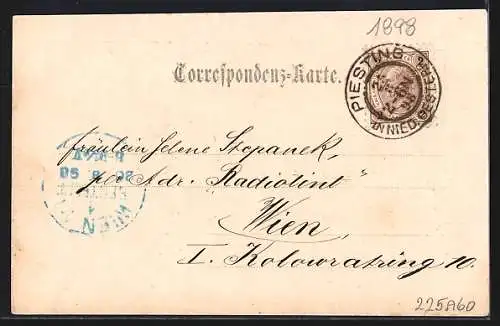 1898
Correspondenz-Karte.
PIESTING
IN NIED. OESTERR.
Fräulein Helene Stopanek,
per Adr. „Radiolint"
Wien,
I. Kolowratring 10.
WIEN
225860